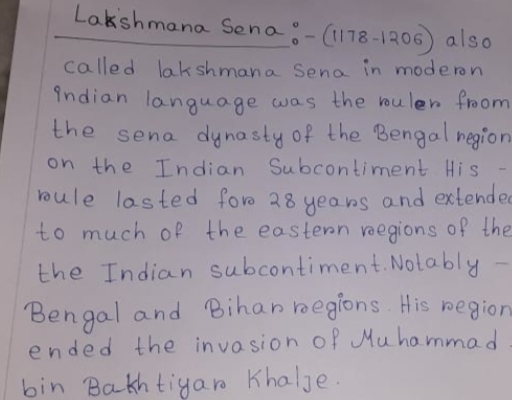 Lakshmana Sena :- (1178-1206) also
called lakshmana Sena in modern
Indian language was the ruler from
the sena dynasty of the Bengal region
on the Indian Subcontiment His -
rule lasted for 28 years and extended
to much of the eastern regions of the
the Indian subcontiment. Notably -
Bengal and Bihar regions. His region
ended the invasion of Muhammad
bin Bakhtiyar Khalje.